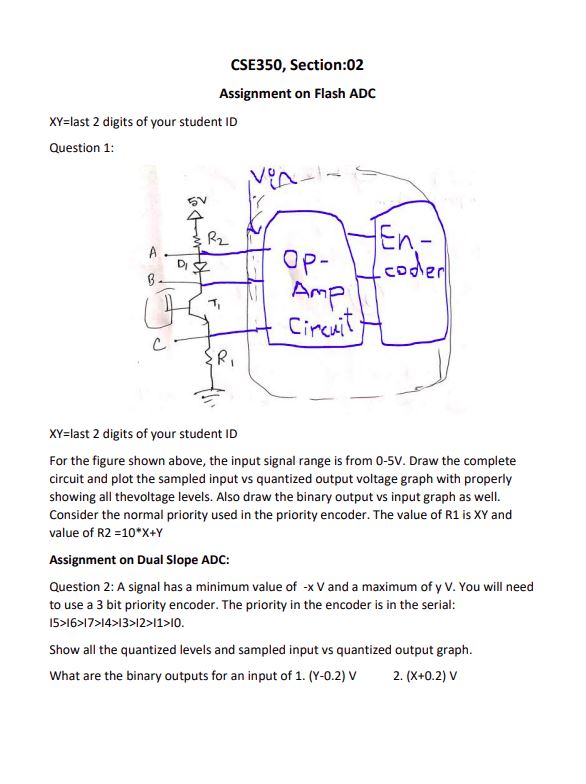 CSE350, Section:02
Assignment on Flash ADC
XY=last 2 digits of your student ID
Question 1:
Vin
5V
R2
A
D1
B
T1
C
R1
Op-
Amp
Circuit
En-
coder
XY=last 2 digits of your student ID
For the figure shown above, the input signal range is from 0-5V. Draw the complete
circuit and plot the sampled input vs quantized output voltage graph with properly
showing all thevoltage levels. Also draw the binary output vs input graph as well.
Consider the normal priority used in the priority encoder. The value of R1 is XY and
value of R2 =10*X+Y
Assignment on Dual Slope ADC:
Question 2: A signal has a minimum value of -x V and a maximum of y V. You will need
to use a 3 bit priority encoder. The priority in the encoder is in the serial:
I5>I6>I7>I4>I3>I2>I1>I0.
Show all the quantized levels and sampled input vs quantized output graph.
What are the binary outputs for an input of 1. (Y-0.2) V 2. (X+0.2) V